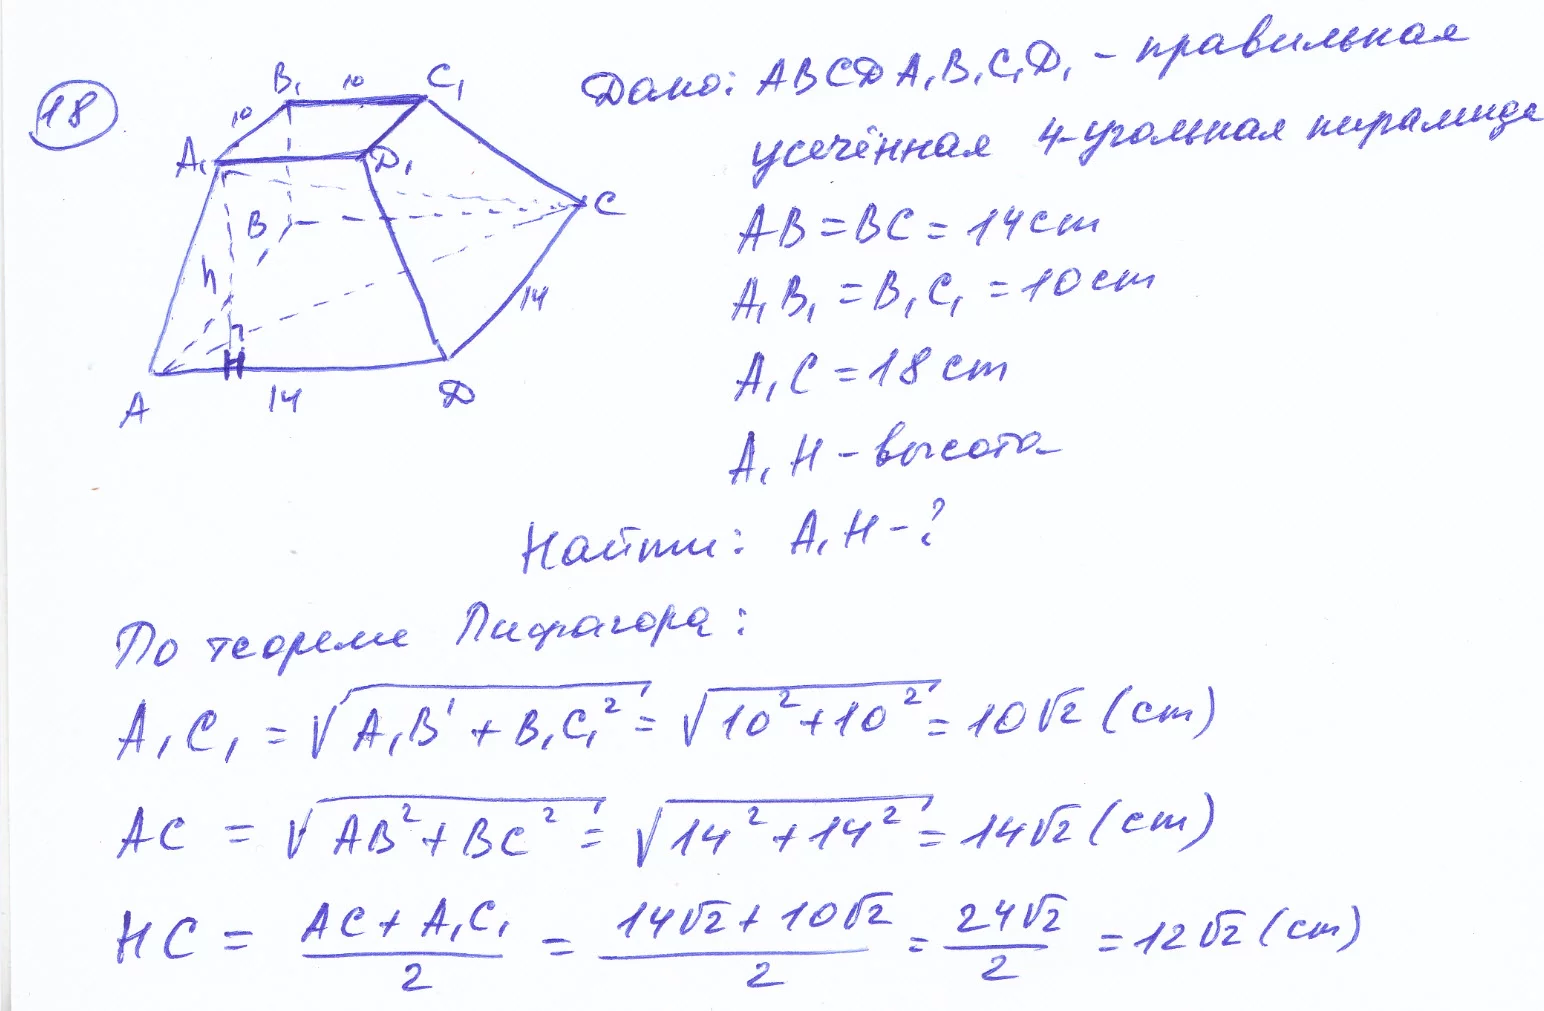 18
B₁ 10 C₁
10
A₁ D₁
B C
h
14
H
A 14 D
Дано: ABCDA₁B₁C₁D₁ – правильная
усечённая 4-угольная пирамида
AB = BC = 14 cm
A₁B₁ = B₁C₁ = 10 cm
A₁C = 18 cm
A₁H – высота
Найти: A₁H – ?
По теореме Пифагора:
A₁C₁ = √(A₁B' + B₁C₁²) = √(10² + 10²) = 10√2 (cm)
AC = √(AB² + BC²) = √(14² + 14²) = 14√2 (cm)
HC = (AC + A₁C₁)/2 = (14√2 + 10√2)/2 = 24√2/2 = 12√2 (cm)